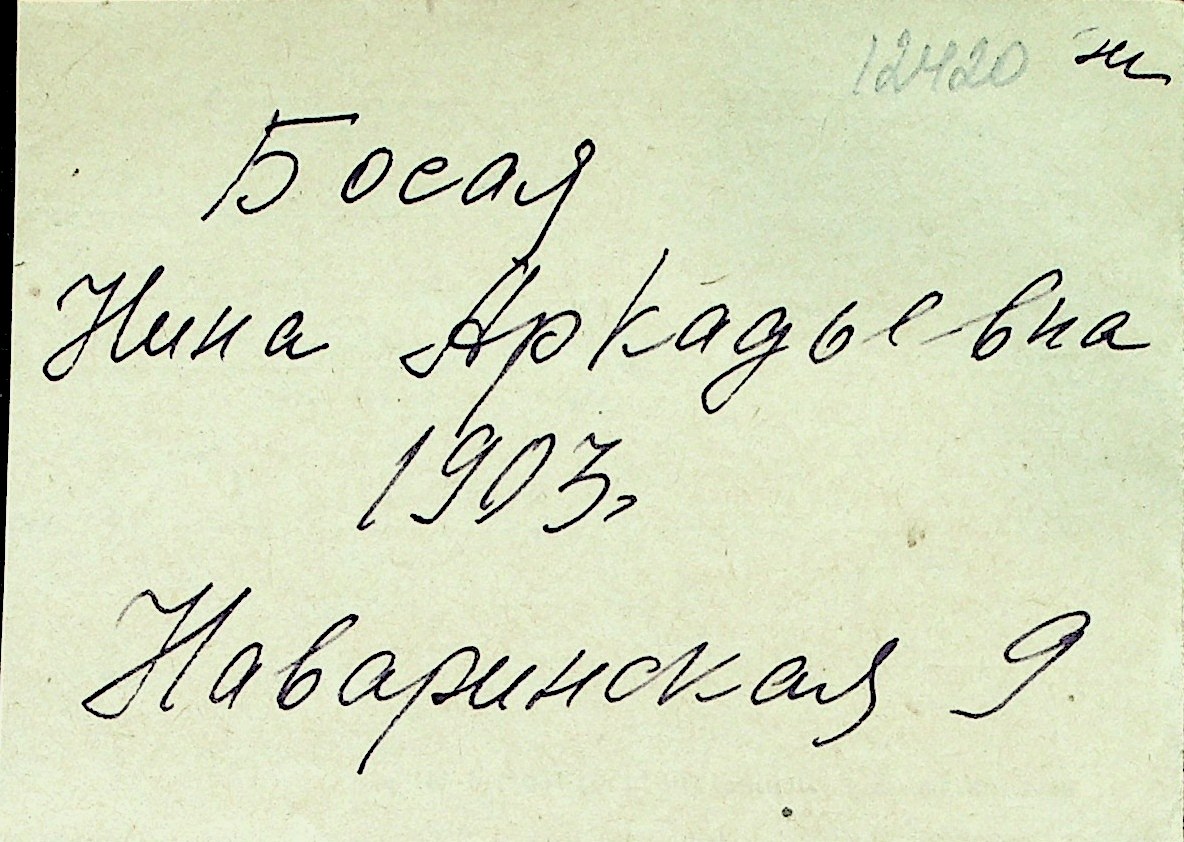 12420 н
Босая
Нина Аркадьевна
1903г
Наваринская 9